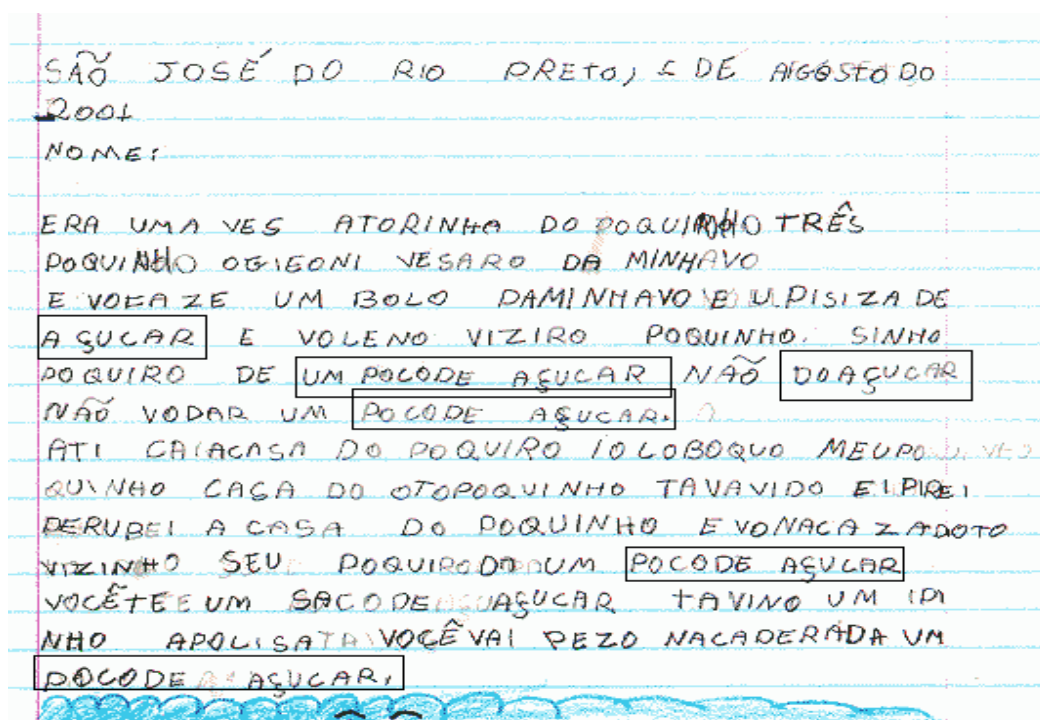 SÃO JOSÉ DO RIO PRETO, 1 DE AGOSTO DO
2001
NOME:
ERA UMA VES ATORINHA DO POQUINHO TRÊS
POQUINHO OGIEONI VESARO DA MINHAVO
E VOFAZE UM BOLO DAMINHAVO E U PISIZA DE
AÇUCAR E VOLENO VIZIRO POQUINHO. SINHO
POQUIRO DE UM POCODE AÇUCAR NÃO DOAÇUCAR
NÃO VODAR UM POCODE AÇUCAR.
ATI CAIACASA DO POQUIRO IOLOBOQUO MEUPO
QUINHO CASA DO OTOPOQUINHO TAVAVIDO EIPIREI
DERUBEI A CASA DO POQUINHO E VONACAZADOTO
VIZINHO SEU POQUIRO UM POCODE AÇUCAR
VOCÊTE E UM SACODE AÇUCAR TAVINO UM IPI
NHO APOLISATA VOCÊ VAI PEZO NACADERADA UM
POCODE AÇUCAR.